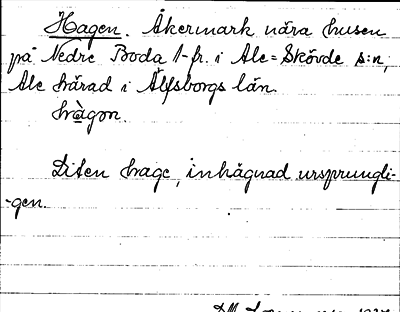 Hagen. Åkermark nära husen
på Nedre Boda 1-fr. i Ale=Skövde s:n,
Ale härad i Älfsborgs län.
hàgon.
Liten hage, inhägnad ursprungli-
-gen.